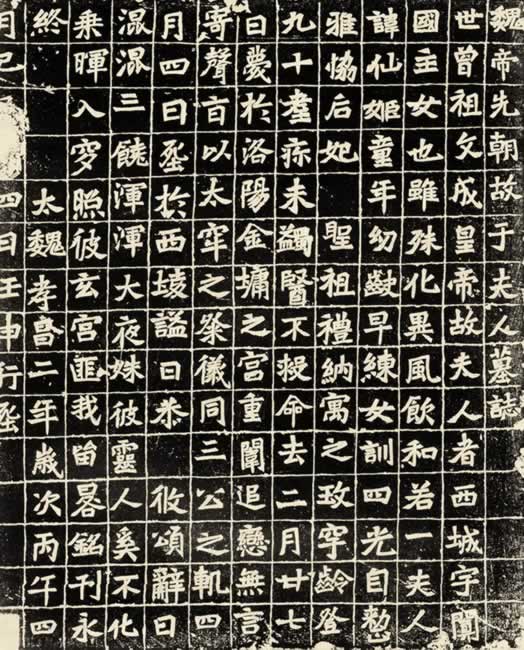 魏帝先朝故于夫人墓誌
世曾祖文成皇帝故夫人者西城宇闐
國主女也雖殊化異風飲和若一夫人
諱仙姬童年幼齔早練女訓四光自整
雅協后妃 聖祖禮納寓之玫穽齡登
九十耋疹未蠲醫不救命去二月廿七
日薨於洛陽金墉之宮重闈追戀無言
寄聲百以太牢之祭儀同三公之軌四
月四日葬於西陵謚曰恭 彼頌辭曰
混混三饒渾渾大夜姝彼靈人奚不化
乘暉入穸照彼玄宮匪我留晷銘刊永
終 太魏孝昌二年歲次丙午四
月己 四日壬申行葬